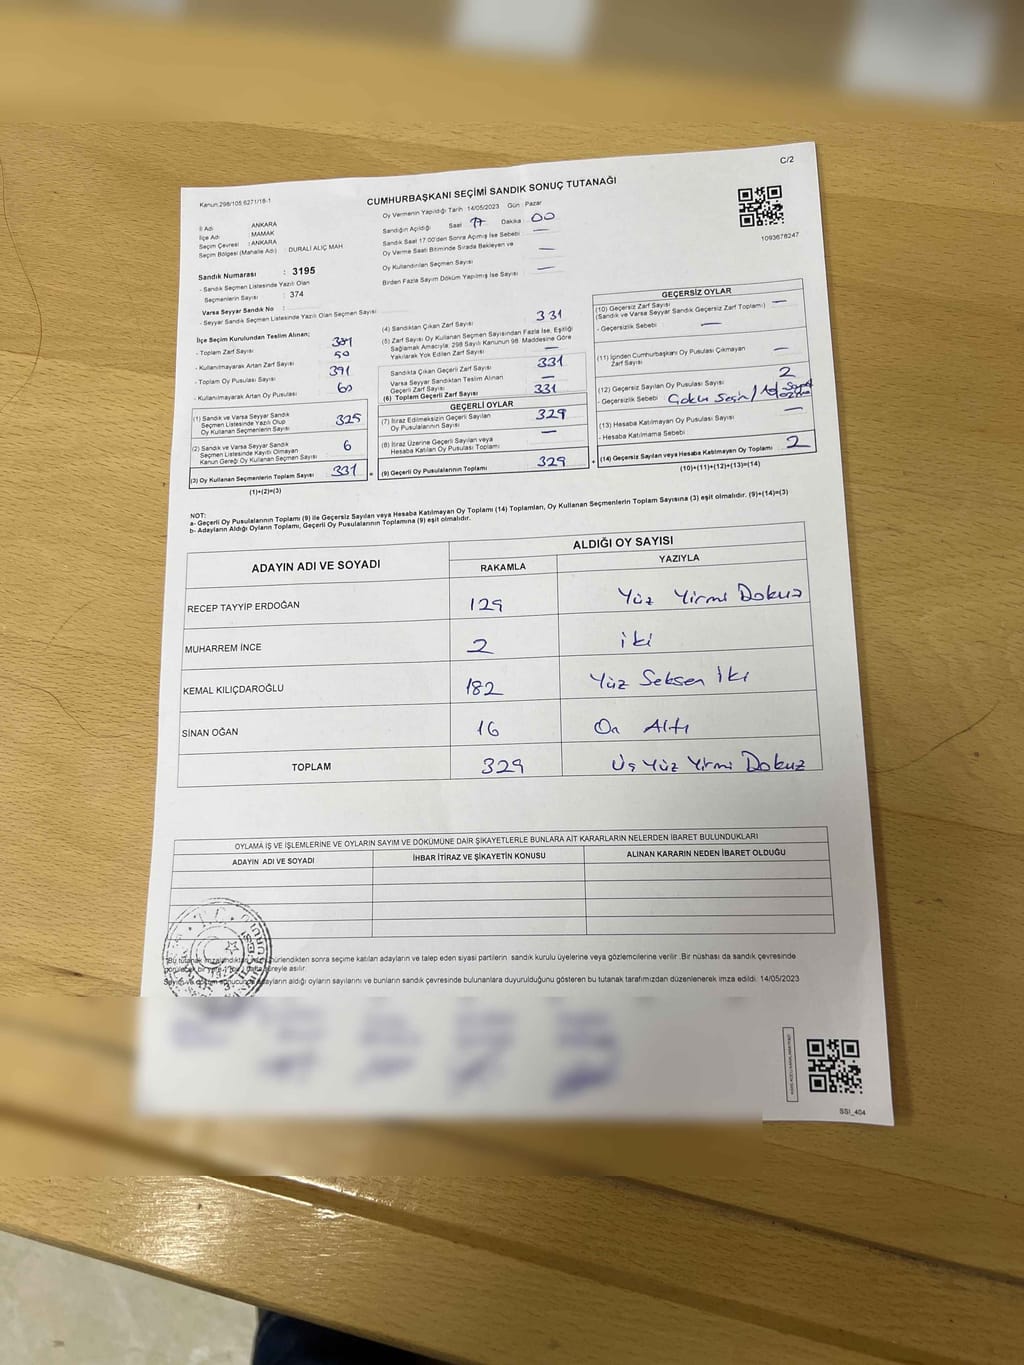 C/2
Kanun:298/105 6271/18-1
CUMHURBAŞKANI SEÇİMİ SANDIK SONUÇ TUTANAĞI
İl Adı : ANKARA
İlçe Adı : MAMAK
Seçim Çevresi : ANKARA
Seçim Bölgesi (Mahalle Adı) : DURALİ ALIÇ MAH
Sandık Numarası : 3195
- Sandık Seçmen Listesinde Yazılı Olan
Seçmenlerin Sayısı : 374
Varsa Seyyar Sandık No :
- Seyyar Sandık Seçmen Listesinde Yazılı Olan Seçmen Sayısı
Oy Vermenin Yapıldığı Tarih :14/05/2023 Gün : Pazar
Sandığın Açıldığı Saat 17 Dakika 00
Sandık Saat 17.00'den Sonra Açılmış İse Sebebi —
Oy Verme Saati Bitiminde Sırada Bekleyen ve
Oy Kullandırılan Seçmen Sayısı —
Birden Fazla Sayım Döküm Yapılmış İse Sayısı —
1093678247
İlçe Seçim Kurulundan Teslim Alınan;
- Toplam Zarf Sayısı
- Kullanılmayarak Artan Zarf Sayısı 50
- Toplam Oy Pusulası Sayısı 391
- Kullanılmayarak Artan Oy Pusulası 60
(1) Sandık ve Varsa Seyyar Sandık
Seçmen Listesinde Yazılı Olup
Oy Kullanan Seçmenlerin Sayısı 325
(2) Sandık ve Varsa Seyyar Sandık
Seçmen Listesinde Kayıtlı Olmayan
Kanun Gereği Oy Kullanan Seçmen Sayısı 6
(3) Oy Kullanan Seçmenlerin Toplam Sayısı 331
(1)+(2)=(3)
(4) Sandıktan Çıkan Zarf Sayısı 331
(5) Zarf Sayısı Oy Kullanan Seçmen Sayısından Fazla İse, Eşitliği
Sağlamak Amacıyla; 298 Sayılı Kanunun 98. Maddesine Göre
Yakılarak Yok Edilen Zarf Sayısı —
Sandıkta Çıkan Geçerli Zarf Sayısı 331
Varsa Seyyar Sandıktan Teslim Alınan
Geçerli Zarf Sayısı —
(6) Toplam Geçerli Zarf Sayısı 331
GEÇERLİ OYLAR
(7) İtiraz Edilmeksizin Geçerli Sayılan
Oy Pusulasının Sayısı 329
(8) İtiraz Üzerine Geçerli Sayılan veya
Hesaba Katılan Oy Pusulası Toplamı —
= (9) Geçerli Oy Pusulalarının Toplamı 329
GEÇERSİZ OYLAR
(10) Geçersiz Zarf Sayısı
(Sandık ve Varsa Seyyar Sandık Geçersiz Zarf Toplamı) —
- Geçersizlik Sebebi : —
(11) İçinden Cumhurbaşkanı Oy Pusulası Çıkmayan
Zarf Sayısı —
(12) Geçersiz Sayılan Oy Pusulası Sayısı 2
- Geçersizlik Sebebi
(13) Hesaba Katılmayan Oy Pusulası Sayısı —
- Hesaba Katılmama Sebebi
+ (14) Geçersiz Sayılan veya Hesaba Katılmayan Oy Toplamı 2
(10)+(11)+(12)+(13)=(14)
NOT:
a- Geçerli Oy Pusulalarının Toplamı (9) ile Geçersiz Sayılan veya Hesaba Katılmayan Oy Toplamı (14) Toplamları, Oy Kullanan Seçmenlerin Toplam Sayısına (3) eşit olmalıdır. (9)+(14)=(3)
b- Adayların Aldığı Oyların Toplamı, Geçerli Oy Pusulalarının Toplamına (9) eşit olmalıdır.
ADAYIN ADI VE SOYADI ALDIĞI OY SAYISI
RAKAMLA YAZIYLA
RECEP TAYYİP ERDOĞAN 129 Yüz Yirmi Dokuz
MUHARREM İNCE 2 iki
KEMAL KILIÇDAROĞLU 182 Yüz Seksen İki
SİNAN OĞAN 16 On Altı
TOPLAM 329 Üç Yüz Yirmi Dokuz
OYLAMA İŞ VE İŞLEMLERİNE VE OYLARIN SAYIM VE DÖKÜMÜNE DAİR ŞİKAYETLERLE BUNLARA AİT KARARLARIN NELERDEN İBARET BULUNDUKLARI
ADAYIN ADI VE SOYADI İHBAR İTİRAZ VE ŞİKAYETİN KONUSU ALINAN KARARIN NEDEN İBARET OLDUĞU
"Bu tutanak sonra seçime katılan adayların ve talep eden siyasi partilerin sandık kurulu üyelerine veya gözlemcilerine verilir. Bir nüshası da sandık çevresinde
süreyle asılır.
adayların aldığı oyların sayılarını ve bunların sandık çevresinde bulunanlara duyurulduğunu gösteren bu tutanak tarafımızdan düzenlenerek imza edildi. 14/05/2023
SSI_404